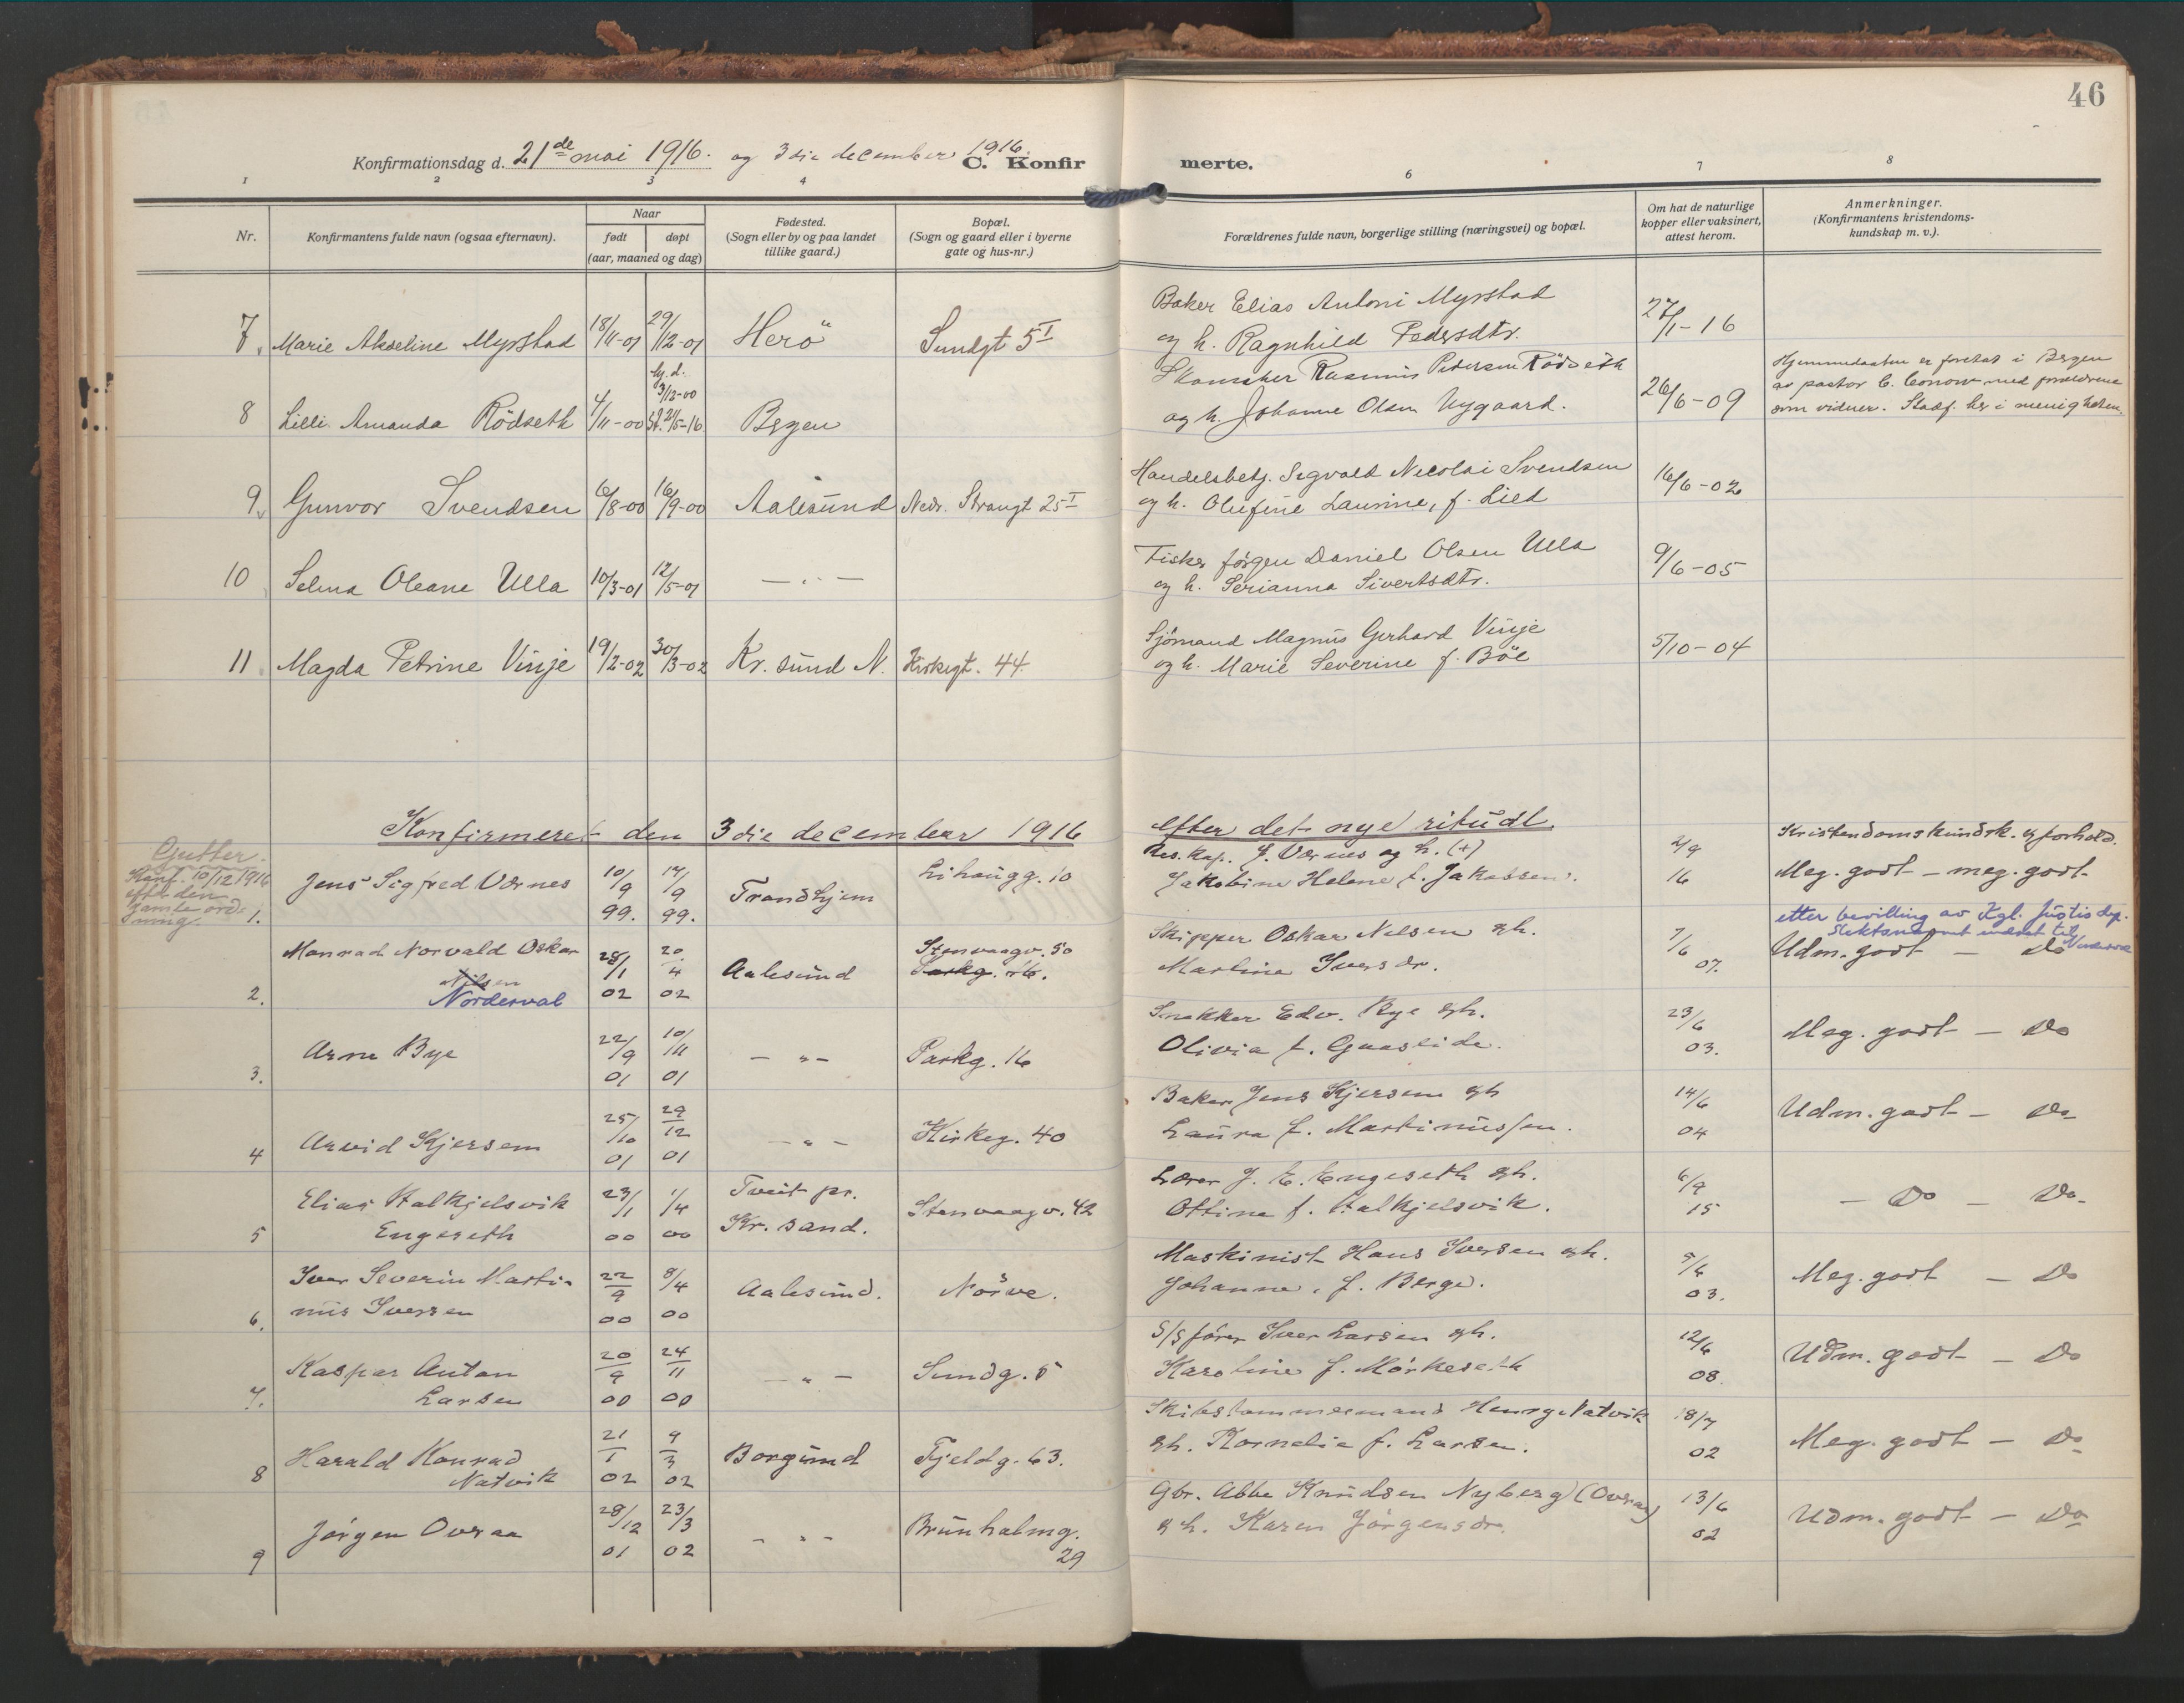 46
Konfirmationsdag d. 21de mai 1916. og 3die december 1916. C. Konfir merte.
1 2 3 4 6 7 8
Nr.
Konfirmantens fulde navn (ogsaa efternavn).
Naar
født døpt
(aar, maaned og dag)
Fødested.
(Sogn eller by og paa landet
tillike gaard.)
Bopæl.
(Sogn og gaard eller i byerne
gate og hus-nr.)
Forældrenes fulde navn, borgerlige stilling (næringsvei) og bopæl.
Om hat de naturlige
kopper eller vaksinert,
attest herom.
Anmerkninger.
(Konfirmantens kristendoms-
kundskap m. v.).
Baker Elias Antoni Myrstad
7. Marie Akseline Myrstad 18/11-01 29/12-01 Herö Sundgt 5 I og h. Ragnhild Pedersdtr. 27/1-16
hj. d. 3/12-00 Skomaker Rasmus Pedersen Rödseth Hjemmedaaben er foretat i Bergen
av pastor C. Conow med forældrene
8 Lilli Amanda Rödseth 4/11-00 St. 21/5-16 Bergen og h. Johanne Olsen Nygaard. 26/6-09 som vidner. Stadf. her i menigheten.
Handelsbetj. Sigvald Nicolai Svendsen
9. Gunvor Svendsen 6/8-00 16/9-00 Aalesund Nedr. Strangt 25 I og h. Olufine Laurine, f. Lied 16/6-02
Fisker Jörgen Daniel Olsen Ulla
10 Selma Oleane Ulla 10/3-01 12/5-01 — " — og h. Serianna Sivertsdtr. 9/6-05
Sjömand Magnus Gerhard Vinje
11. Magda Petrine Vinje 19/2-02 30/3-02 Kr. sund N. Kirkegt. 44 og h. Marie Severine f. Böe 5/10-04
Konfirmeret den 3die december 1916 efter det nye ritual.
Kristendomskundsk. og forhold.
Gutter.
Konf. 10/12 1916
efter den
gamle ord-
ning.
Res. kap. J. Værnes og h. (+)
1. Jens Sigfred Værnes 10/9 99. 14/9 99. Trondhjem Lihaugg. 10 Jakobine Helene f. Jakobsen. 2/9 16 Meg. godt – meg. godt
etter bevilling av Kgl. Justisdep.
slektsnavnet endret til
Norderval
Monrad Norvald Oskar Stenvaagv. 50 Skipper Oskar Nilsen og h.
Nilsen 28/1 02 20/4 02 Aalesund Parkg. 16. Martine Iversdr. 7/6 07. Udm. godt – Do
2. Norderval
Snekker Edv. Bye og h.
3. Arne Bye 22/9 01 10/11 01 – " – Parkg. 16 Olivia f. Gaaseide. 23/6 03. Meg. godt – Do
Baker Jens Kjersem og h
4 Arvid Kjersem 25/10 01 29/12 01 – " – Kirkeg. 40 Laura f. Martinussen. 14/6 04 Udm. godt – Do
Elias Stalkjelsvik 23/1 00 1/4 00 Tveit pr. Stenvaagv. 42 Lærer J. E. Engeseth og h. 6/9 15 – Do – Do
5 Engeseth Kr. sand. Ottine f. Stalkjelsvik.
Iver Severin Marti- 22/9 00 8/4 00 Aalesund. Nörve. Maskinist Hans Iversen og h. 5/6 03. Meg. godt – Do
6. nus Iversen Johanne, f. Berge.
Kaspar Anton 20/9 00 24/11 00 – " – Sundg. 5 S/S förer Iver Larsen og h. 12/6 08 Udm. godt – Do
7. Larsen Karoline f. Mörkeseth
Harald Konrad 21/1 02 9/3 02 Borgund Fjeldg. 63. Skibstømmermand Henry Natvik 18/7 02 Meg. godt – Do
8 Natvik og h. Kornelia f. Larsen.
Gbr. Abbe Knudsen Nyberg (Overaa)
9 Jörgen Overaa 28/12 01 23/3 02 – " – Brunholmg. 29 og h. Karen Jörgensdr. 13/6 02 Udm. godt – Do